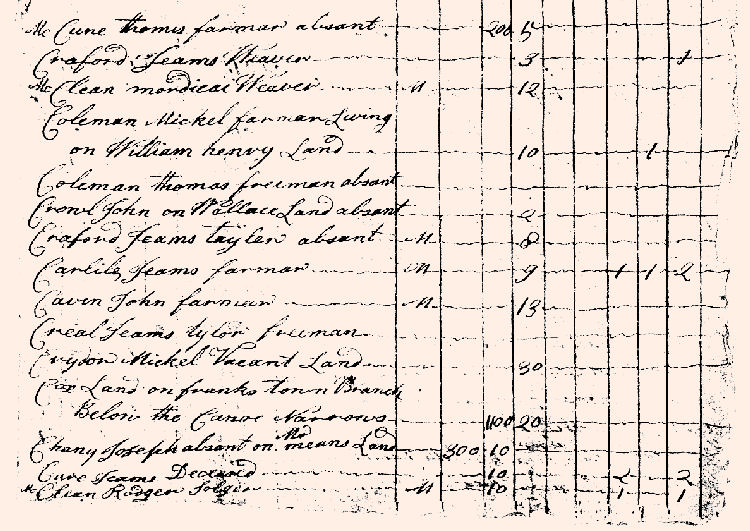 Mc Cune thomis farmar absant 200 5
Craford Jeams Weaver 3 1
Mc Clean mordicai Weaver M 12
Coleman Mickel farmar Living
on William henry Land 10 1
Coleman thomas freeman absant
Crowl John on Wallace Land absant 2
Craford Jeams tayler absant M 8
Carlile Jeams farmar M 9 1 1 2
Cavin John farmar M 13
Creal Jeams tylor freeman
Mickel Vacant Land 30
Cox Land on franks town Branch
Below the Canoe Narrows 400 20
Chany Joseph absant on Mc means Land 300 10
Cuve Jeams Deceasd 10 2 2
Mc Clean Rodger M 10 1 1